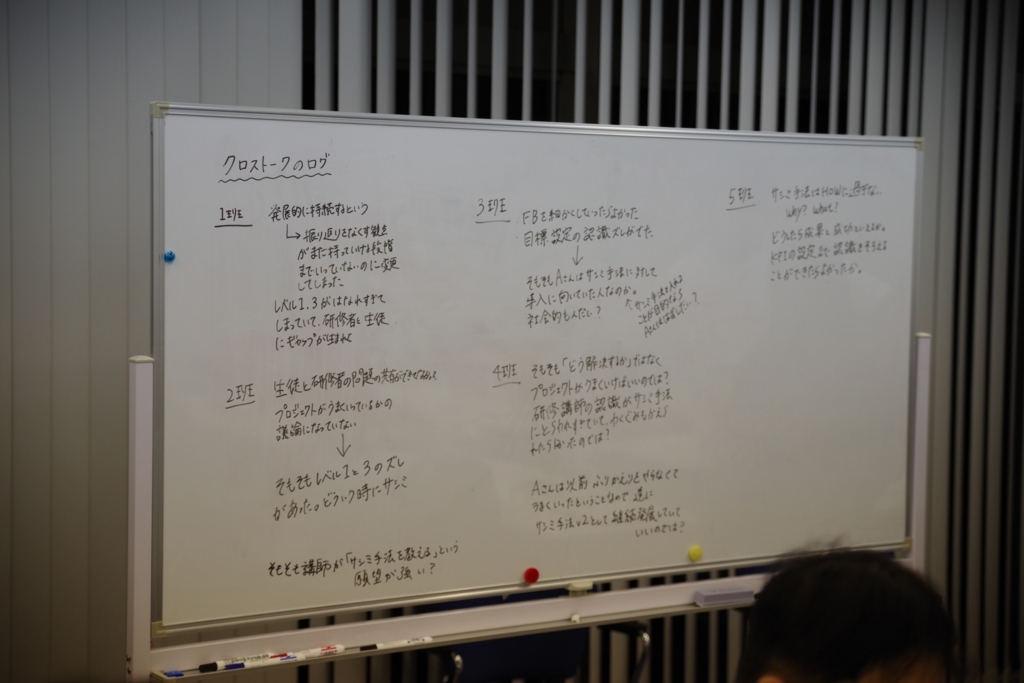 クロストークのログ
1班
発展的に持続するという
↳振り返りをなくす観点
がまだ持っていける段階
までいっていないのに変更
してしまった
レベル1,3がはなれすぎて
しまっていて、研修者と生徒
にギャップが生まれて
2班
生徒と研修者の問題の共有ができてなくって
プロジェクトがうまくいっているかの
議論になっていない
↓
そもそもレベル1と3のズレ
があった。どういう時にサンミ
そもそも講師が「サンミ手法を教える」という
願望が強い?
3班
FBを細かくしていったらよかった
目標設定の認識ズレがでた
↓
そもそもAさんはサンミ手法に対して
導入に向いていた人なのか。
社会的もんだい?
↖サンミ手法を入れる
ことが目的なら
Aさんは
4班
そもそも「どう解決するか」ではなく
プロジェクトがうまくいけばいいのでは?
研修講師の認識がサンミ手法
にとらわれすぎていて、わくぐみもかえら
れたら良かったのでは?
Aさんは以前ふりかえりをやらなくて
うまくいったということなので逆に
サンミ手法v2として継続発展してして
いいのでは?
5班
サンミ手法はHOWに過ぎない。
Why? What!
どうなったら成果と成功といえるか。
KPIの設定まで認識をそろえる
ことができたらよかったか。